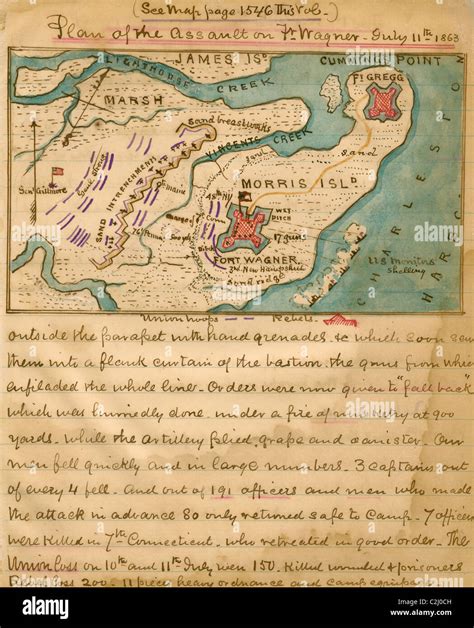 (See Map page 1546 This Vol.)
Plan of the Assault on Ft Wagner - July 11th 1863
JAMES ISD
CUMMINGS POINT
LIGHTHOUSE CREEK
FT GREGG
MARSH
Sand breastworks
VINCENTS CREEK
Sand
sand
SAND INTRENCHMENT
MORRIS ISLD
WET DITCH
17 guns
FORT WAGNER
Sand ridge
CHARLESTON HARBOR
US monitors Shelling
Union troops Rebels
outside the parapet with hand grenades, &c which soon sent
them into a flank curtain of the bastion, the guns from which
enfiladed the whole line. Orders were now given to "fall back"
which was hurriedly done, under a fire of musketry at 900
yards. while the artillery plied, grape and canister. Our
men fell quickly and in large numbers. 3 captains out
of every 4 fell. And out of 191 officers and men who made
the attack in advance 80 only returned safe to camp. 7 officers
were killed in 7th Connecticut, who retreated in good order. The
Union loss on 10th and 11th July were 150. Killed wounded & prisoners
loss 200. 11 piece heavy ordnance and camp equipage
alamy
Image ID: C2J0CH
www.alamy.com